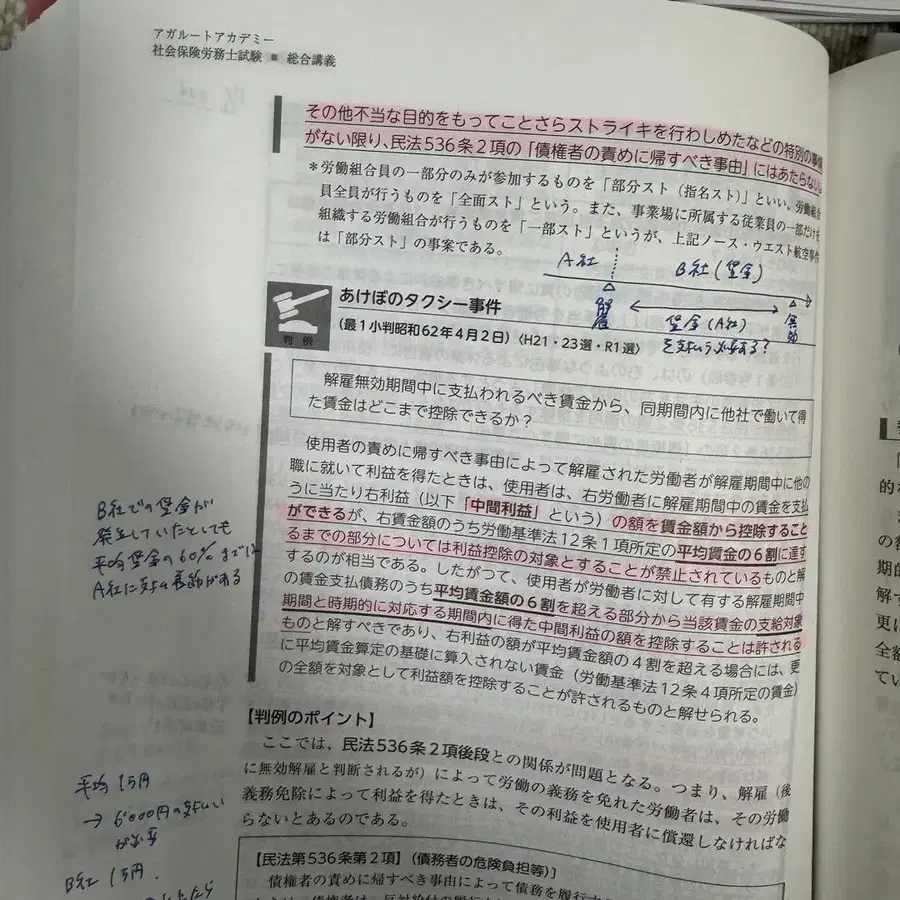 アガルートアカデミー
社会保険労務士試験 ■ 総合講義
その他不当な目的をもってことさらストライキを行わしめたなどの特別の事情
がない限り、民法536条2項の「債権者の責めに帰すべき事由」にはあたらない
＊労働組合員の一部分のみが参加するものを「部分スト（指名スト）」といい、労働組合
員全員が行うものを「全面スト」という。また、事業場に所属する従業員の一部だけを
組織する労働組合が行うものを「一部スト」というが、上記ノース・ウエスト航空事件
は「部分スト」の事案である。
A社
B社（賃金）
解雇
賃金（A社）
を支払う必要ある？
無効
判例
あけぼのタクシー事件
（最1小判昭和62年4月2日）〈H21・23選・R1選〉
解雇無効期間中に支払われるべき賃金から、同期間内に他社で働いて得
た賃金はどこまで控除できるか？
使用者の責めに帰すべき事由によって解雇された労働者が解雇期間中に他の
職に就いて利益を得たときは、使用者は、右労働者に解雇期間中の賃金を支払
うに当たり右利益（以下「中間利益」という）の額を賃金額から控除すること
ができるが、右賃金額のうち労働基準法12条1項所定の平均賃金の6割に達す
るまでの部分については利益控除の対象とすることが禁止されているものと解
するのが相当である。したがって、使用者が労働者に対して有する解雇期間中
の賃金支払債務のうち平均賃金額の6割を超える部分から当該賃金の支給対象
期間と時期的に対応する期間内に得た中間利益の額を控除することは許される
ものと解すべきであり、右利益の額が平均賃金額の4割を超える場合には、更
に平均賃金算定の基礎に算入されない賃金（労働基準法12条4項所定の賃金）
の全額を対象として利益額を控除することが許されるものと解せられる。
B社での賃金が
発生していたとしても
平均賃金の60%までは
A社に支払の義務がある
【判例のポイント】
ここでは、民法536条2項後段との関係が問題となる。つまり、解雇（後
に無効解雇と判断されるが）によって労働の義務を免れた労働者は、その労働
義務免除によって利益を得たときは、その利益を使用者に償還しなければな
らないとあるのである。
平均1万円
→ 6000円の支払い
が必要
B社 1万円.
【民法第536条第2項】（債務者の危険負担等）〕
債権者の責めに帰すべき事由によって債務を履行す